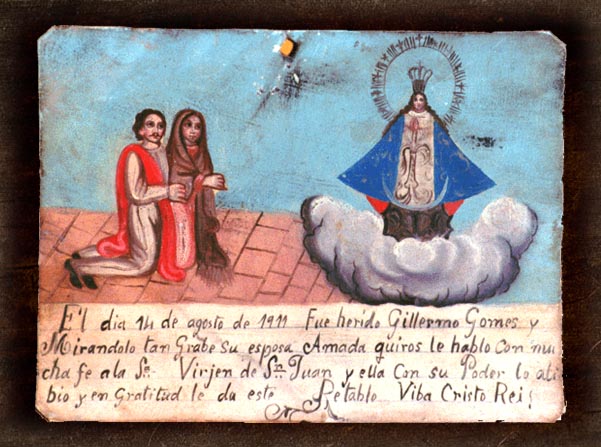 El dia 14 de agosto de 1911 Fue herido Gillermo Gomes y
Mirandolo tan Grabe su esposa Amada quiros le hablo con mu
cha fe a la Sra. Virjen de Sn Juan y ella con su Poder lo ali
bio y en Gratitud le da este Retablo Viba Cristo Rei!